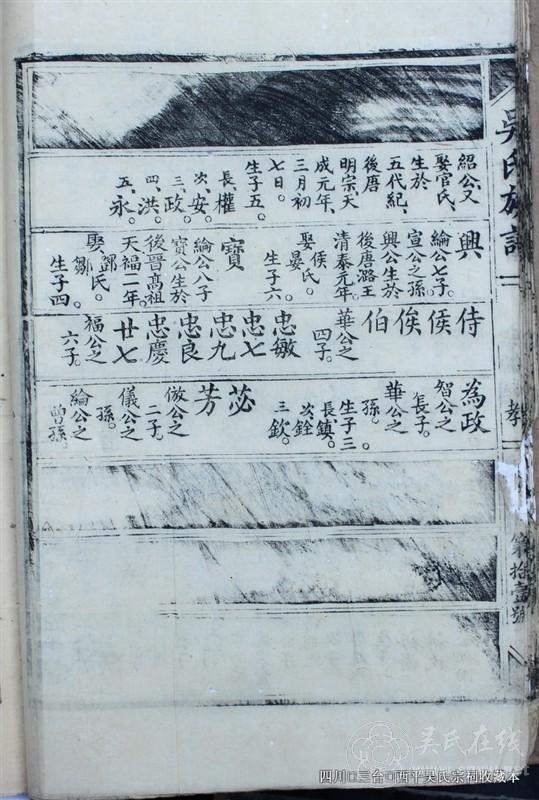 吳氏族譜
教
第拾壹號
紹公又
娶官氏、
生於
五代紀、
後唐
明宗天
成元年、
三月初
七日。
生子五。
長、權
次、安。
三、政。
四、洪。
五、永。
興
綸公七子。
宣公之孫。
興公生於
後唐潞王
清泰元年。
娶侯氏。
晏
生子六。
寶
綸公八子
寶公生於
後晉高祖
天福一年。
娶鄧氏。
鄒
生子四。
侍
侯
俟
伯
華公之
四子。
忠敏
忠七
忠九
忠良
忠慶
廿七
福公之
六子。
為政
智公之
長子。
華公之
孫。
生子三
長鎮。
次銓
三欽。
苾
芳
倣公之
二子。
儀公之
孫。
綸公之
曾孫
吴氏在线
四川□三台□西平吴氏宗祠收藏本